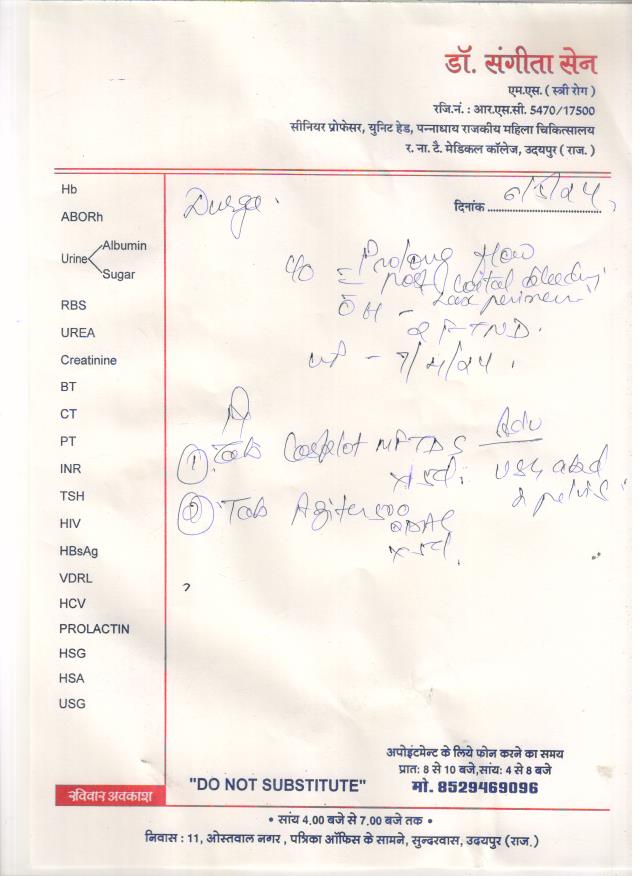 डॉ. संगीता सेन
एम.एस. ( स्त्री रोग )
रजि.नं. : आर.एस.सी. 5470/17500
सीनियर प्रोफेसर, युनिट हेड, पन्नाधाय राजकीय महिला चिकित्सालय
र. ना. टै. मेडिकल कॉलेज, उदयपुर ( राज. )
दिनांक
Durga.
Hb
ABORh
Urine Albumin
Sugar
RBS
UREA
Creatinine
BT
CT
PT
INR
TSH
HIV
HBsAg
VDRL
HCV
PROLACTIN
HSG
HSA
USG
c/o Prolong flow
post coital bleeding
Lax perineum
2 FTND.
- 7/4/24.
Adv
① Tab MF TDS
x 5d.
USG abd
& pelvis
② Tab 500
x 5d.
"DO NOT SUBSTITUTE"
अपोइंटमेन्ट के लिये फोन करने का समय
प्रातः 8 से 10 बजे, सांयः 4 से 8 बजे
मो. 8529469096
रविवार अवकाश
• सांय 4.00 बजे से 7.00 बजे तक •
निवास : 11, ओस्तवाल नगर , पत्रिका ऑफिस के सामने, सुन्दरवास, उदयपुर (राज.)